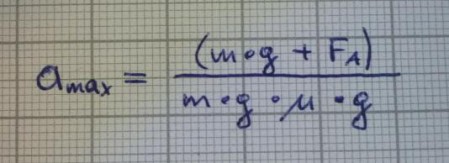 a_max = (m·g + F_A) / m·g·μ·g